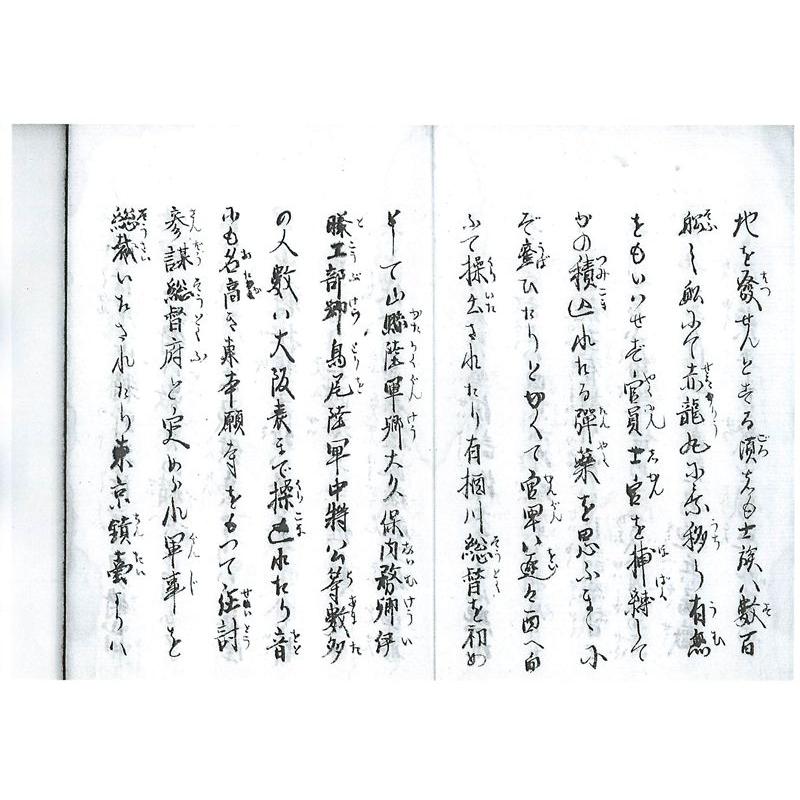 地を發せんとする頃しも士族ハ數百
艘の船にて赤龍丸に乘移り有無
をもいハせず官員士官を捕縛して
かの積込れたる彈藥を思ふまゝに
ぞ奪ひたりとかくて官軍ハ追々西へ向
ふて操出されたり有栖川総督を初め
として山縣陸軍卿大久保内務卿伊
藤工部卿鳥尾陸軍中將公等數多
の人數ハ大阪表まで操込れたり音
にも名高き東本願寺をもつて征討
参謀総督府と定められ軍事を
総裁いたされたり東京鎮臺よりハ